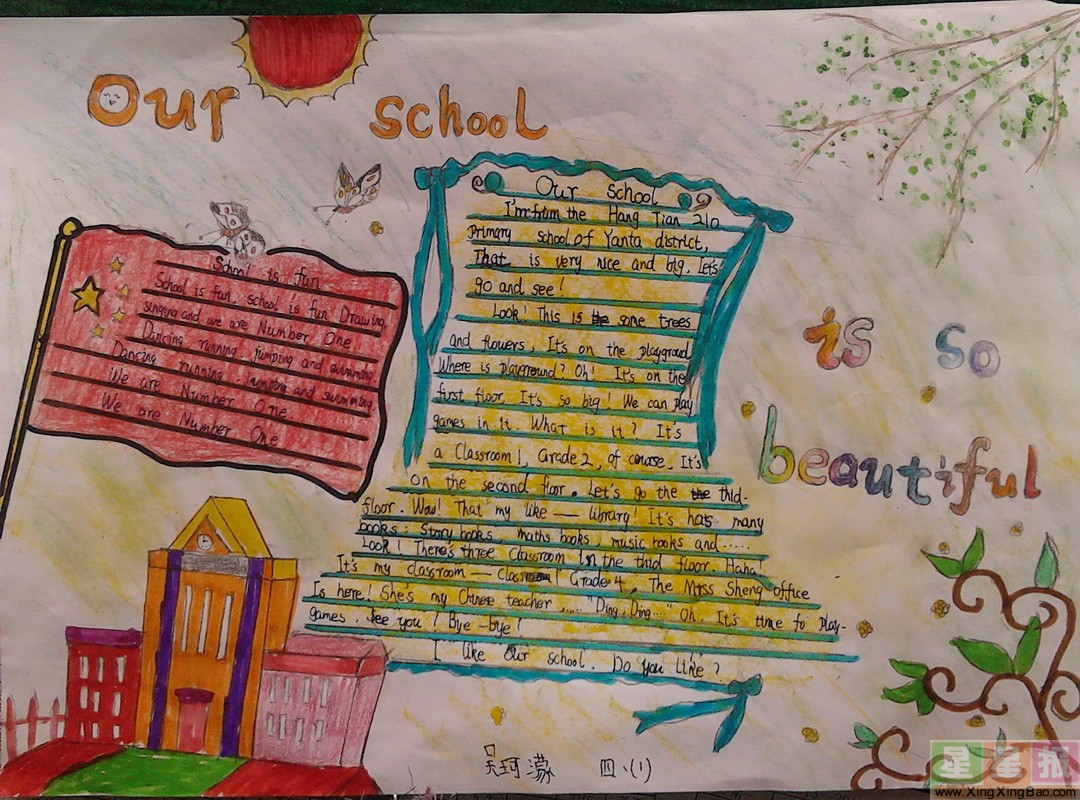 Our school
is so
beautiful
School is fun
School is fun, school is fun Drawing,
singing and we are Number One.
Dancing running, jumping and swimming
Dancing running, jumping and swimming.
We are Number One.
We are Number One
Our school
I'm from the Hang Tian 210
Primary school of Yanta district,
That is very nice and big, let's
go and see!
Look! This is the some trees
and flowers, It's on the playgraud
Where is playground? Oh! It's on the
first floor. It's so big! We can play
games in it. What is it? It's
a Classroom 1, Grade 2, of course, It's
on the second floor. Let's go the the thid-
floor. Wow! That my like — library! It's has many
books: Story books, maths books, music books and......
Look! There's three Classroom in the thid floor. Haha!
It's my classroom — Classroom 1 Grade 4, The Miss Sheng office
Is here! She's my Chinese teacher ,...... "Ding, Ding...." Oh, It's time to play-
games. See you! Bye-bye!
I like our school. Do you like?
吴珂濛 四、(1)
星星报
www.XingXingBao.com